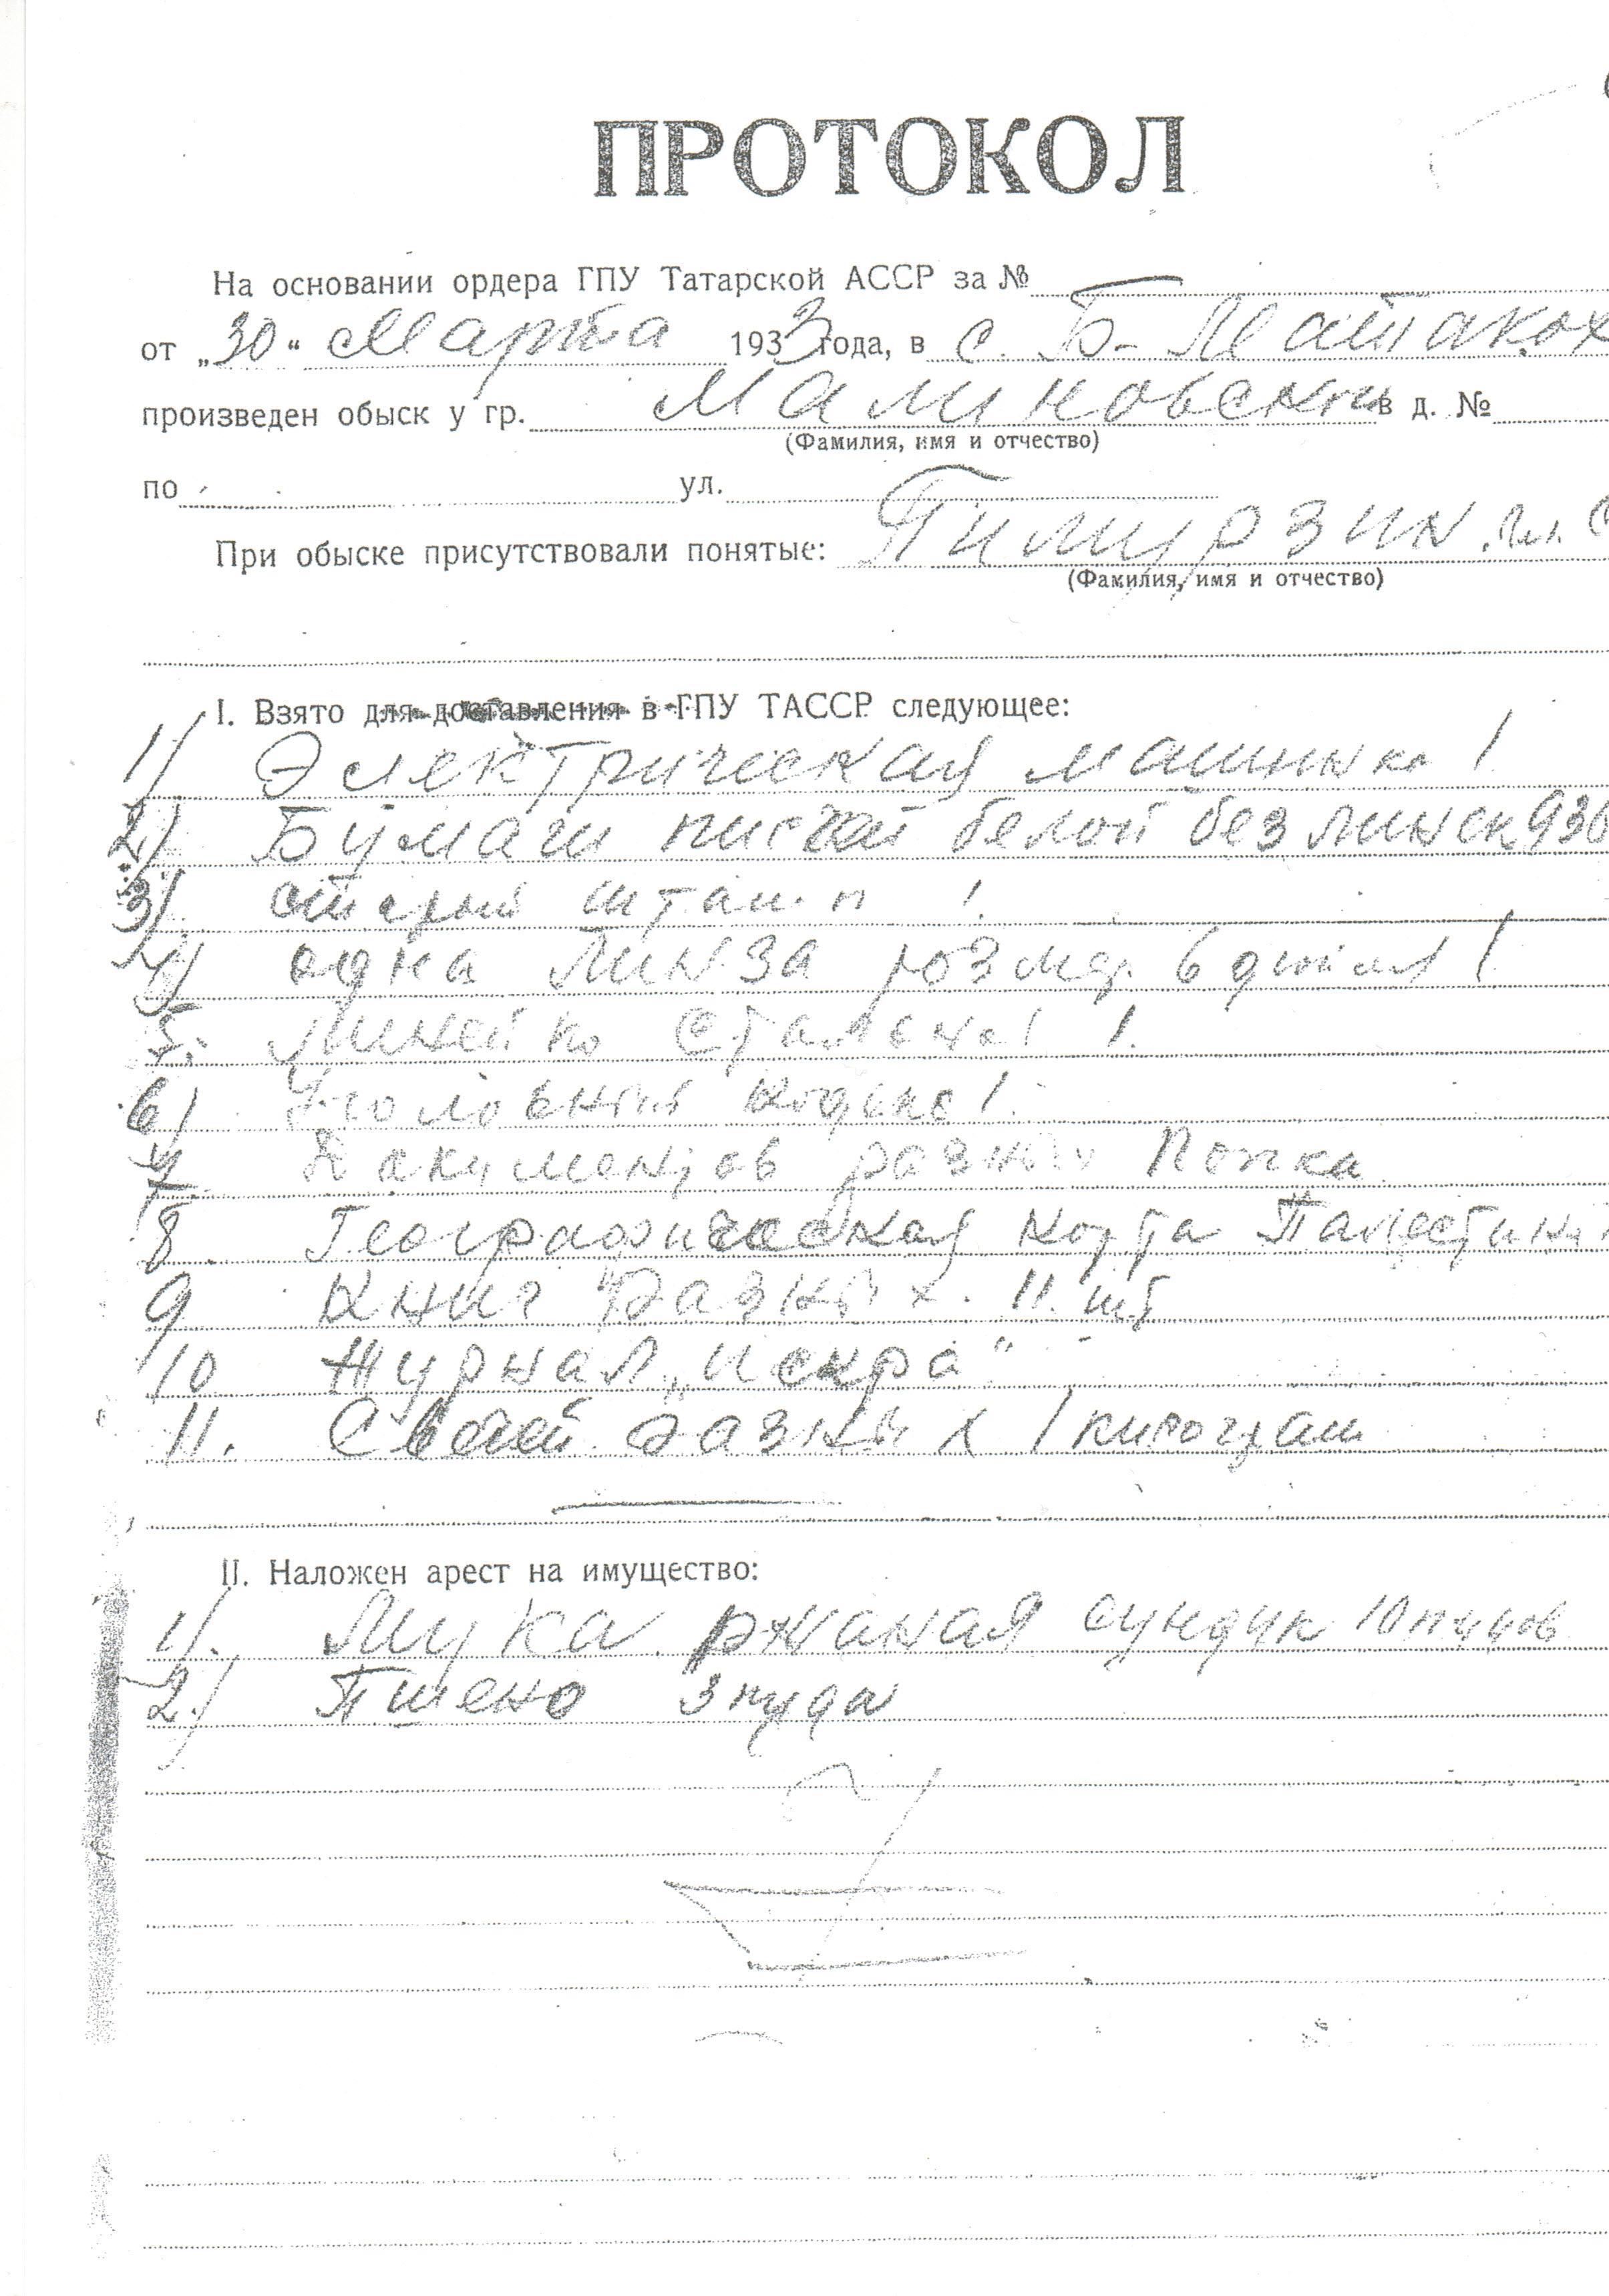 ПРОТОКОЛ
На основании ордера ГПУ Татарской АССР за №
от „30“ Марта 1933 года, в с. Б-Матаках
произведен обыск у гр. Малиновский в д. №
(Фамилия, имя и отчество)
по ул.
При обыске присутствовали понятые: Тимурзин
(Фамилия, имя и отчество)
I. Взято для доставления в ГПУ ТАССР следующее:
1) Электрическая машинка 1
2) Бумаги белой без линек
3) старый штамп 1
4) одна линза розмер 6 дюйм 1
5. Линейка Стальна 1
6) Уголовный кодекс 1
7 Документов разных Попка
8. Географическая карта Палестины
9 Книг разных 11 шт
10 Журнал „Искра“
11. разных 1 килограм
II. Наложен арест на имущество:
1). Мука ржаная сундук 10 пудов
2.) Пшено 3 пуда